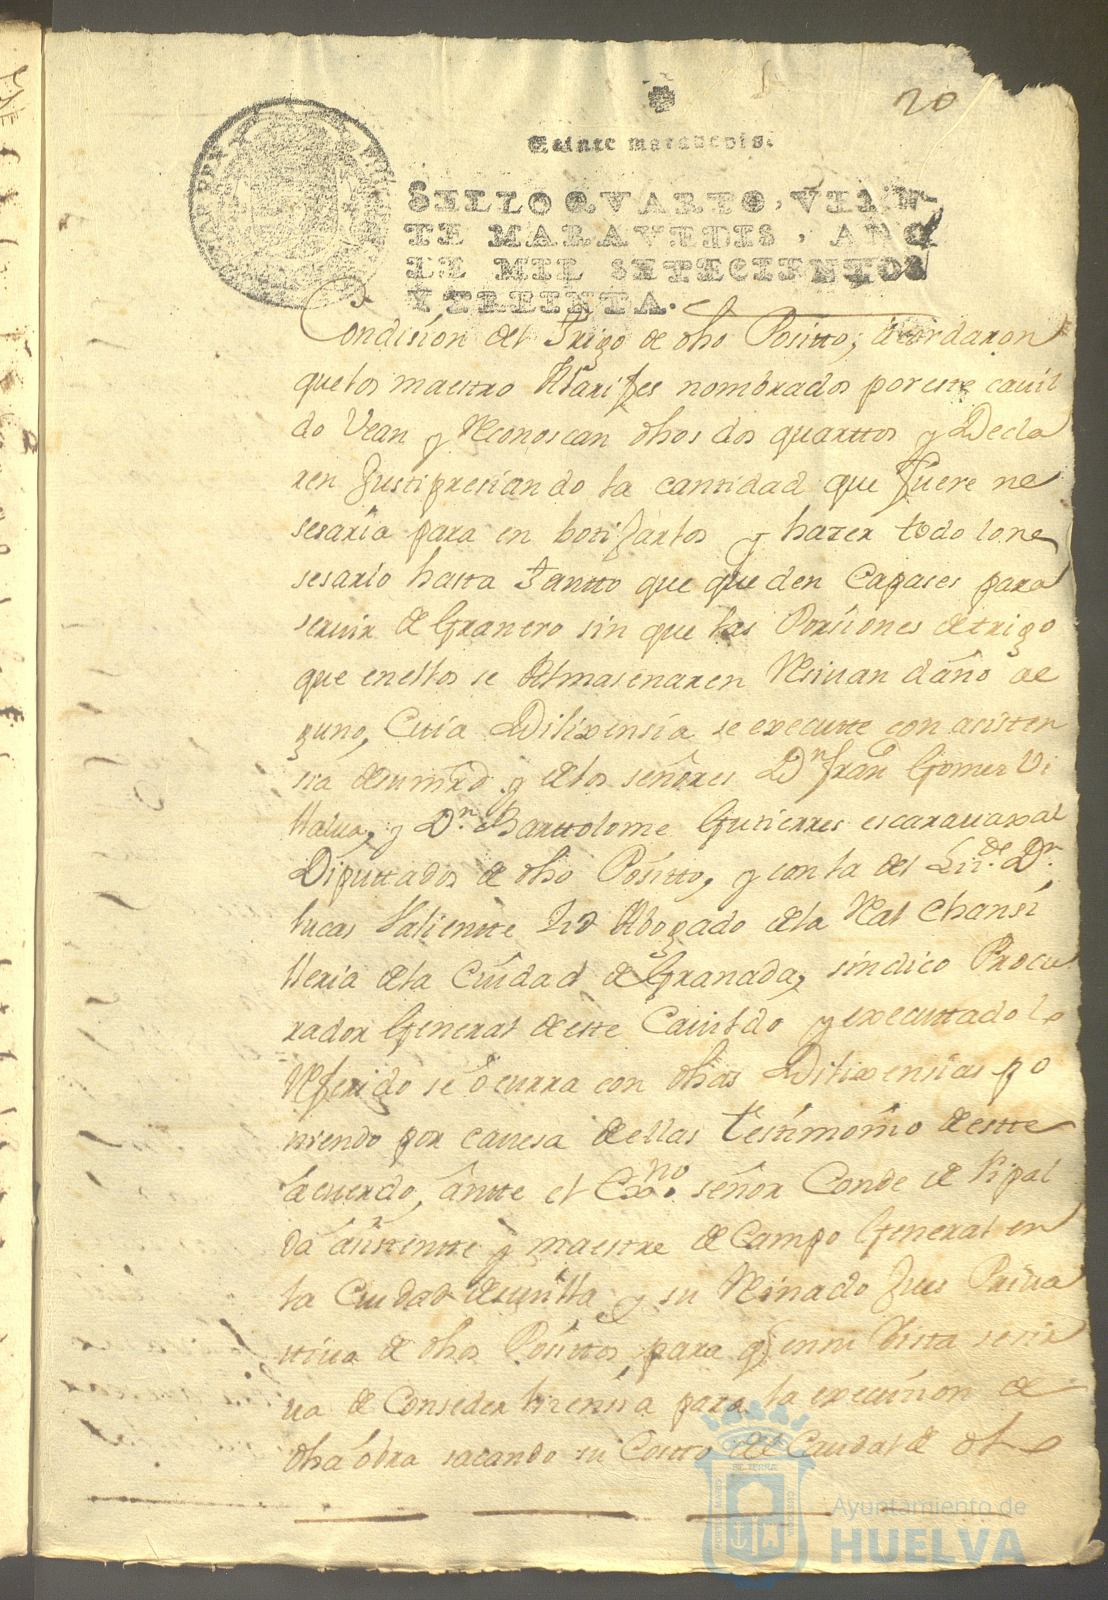 20
Veinte maravedis.
SELLO QVARTO, VEIN-
TE MARAVEDIS, AÑO
DE MIL SETECIENTOS
Y TREINTA.
Condision del Trigo de dho Positto, acordaron
que los maestro Alarifes nombrados por este cavil
do Vean y Reconoscan dhos dos quarttos y Decla
ren Justipresiando la cantidad que fuere ne
sesaria para en bonifarlos y hazer todo lo ne
sesario hasta tantto que queden capases para
servir de Granero sin que las Porsiones de trigo
que en ellos se Almasenaren Resivan daño al
guno, Cuia Dilixensia se executte con asisten
sia de su mrd y de los señores Dn. Fran.co Gomes Vi
llalva, y Dn. Barttolome Gutierres escaravaxal
Diputtados de dho Positto, y con la del Liz.do Dn.
lucas Valientte Abogado de la Real Chansi
lleria de la Ciudad de Granada, sindico Procu
rador General de este Cavildo y executtado lo
Referido se ocurra con dhas Dilixensias po
niendo por cavesa de ellas testimonio de estte
acuerdo, antte el Exmo. señor Conde de Ripal
da asistentte y maestre de Campo General en
la Ciudad de sevilla y su Reinado Jues Priva
ttivo de dhos Posittos, para q en su Vista se sir
va de Conseder lisensia para la execusion de
dha obra sacando su Costto del Caudal de dho
Ayuntamiento de
HUELVA